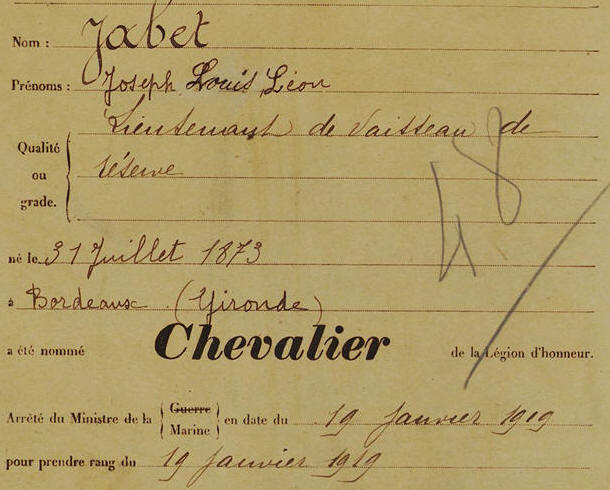 Nom : Jabet
Prénoms : Joseph Louis Léon
Qualité ou grade. Lieutenant de Vaisseau de
réserve
né le 31 Juillet 1873
à Bordeaux (Gironde)
a été nommé Chevalier de la Légion d'honneur.
Arrêté du Ministre de la Guerre Marine en date du 19 Janvier 1919
pour prendre rang du 19 Janvier 1919